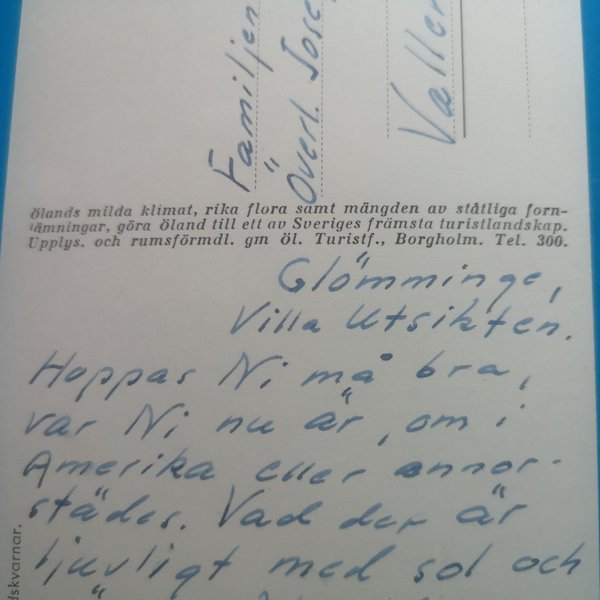 Familjen
Överl. Jose
Valler
ölands milda klimat, rika flora samt mängden av ståtliga forn-
lämningar, göra öland till ett av Sveriges främsta turistlandskap.
Upplys. och rumsförmdl. gm öl. Turistf., Borgholm. Tel. 300.
Glömminge,
Villa Utsikten.
Hoppas Ni må bra,
var Ni nu är, om i
Amerika eller annor-
städes. Vad der är
ljuvligt med sol och
dskvarnar.